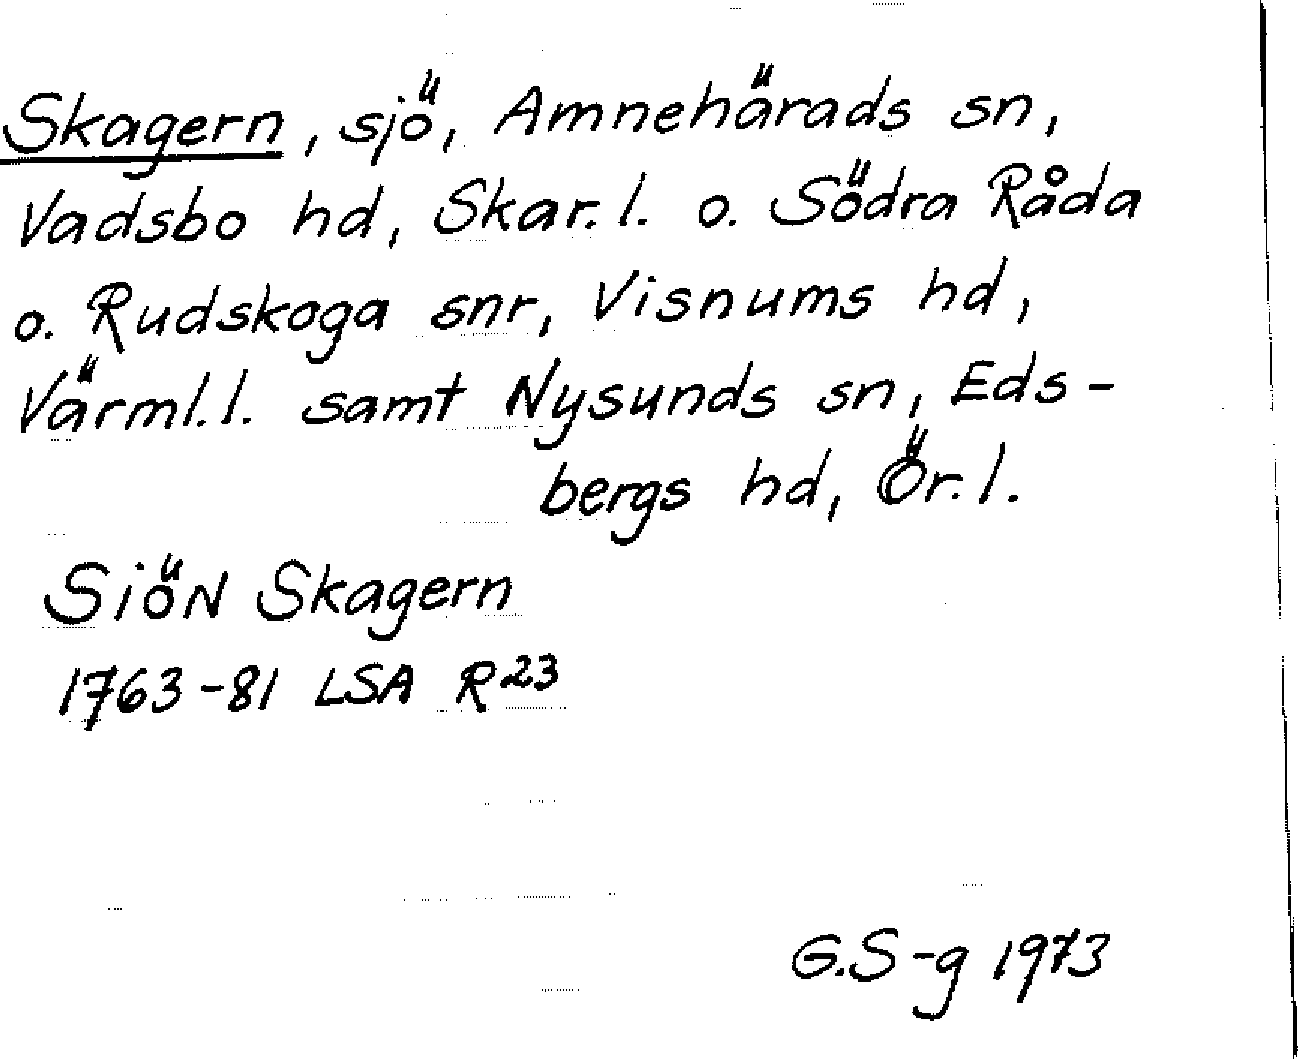 Skagern, sjö, Amnehärads sn,
Vadsbo hd, Skar. l. o. Södra Råda
o. Rudskoga snr, Visnums hd,
Värml. l. samt Nysunds sn, Eds-
bergs hd, Ör. l.
Siön Skagern
1763-81 LSA R23
G.S-g 1973